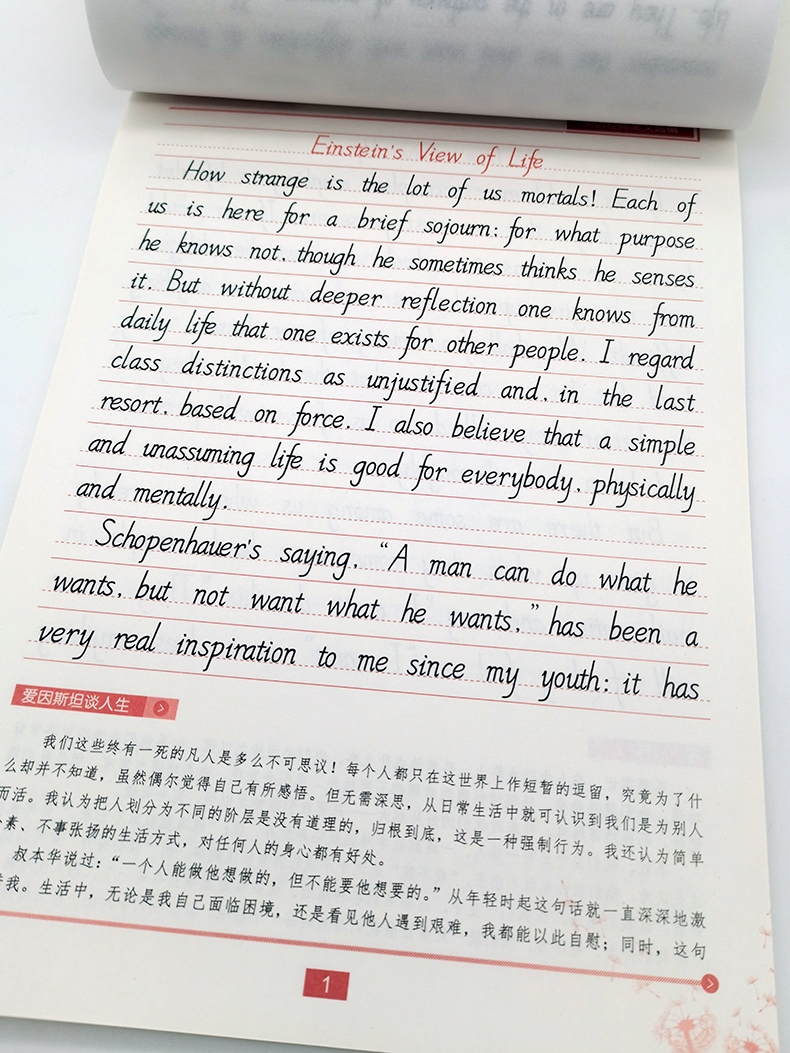 Einstein's View of Life
How strange is the lot of us mortals! Each of
us is here for a brief sojourn; for what purpose
he knows not, though he sometimes thinks he senses
it. But without deeper reflection one knows from
daily life that one exists for other people. I regard
class distinctions as unjustified and, in the last
resort, based on force. I also believe that a simple
and unassuming life is good for everybody, physically
and mentally.
Schopenhauer's saying, “A man can do what he
wants, but not want what he wants,” has been a
very real inspiration to me since my youth; it has
爱因斯坦谈人生
我们这些终有一死的凡人是多么不可思议！每个人都只在这世界上作短暂的逗留，究竟为了什
么却并不知道，虽然偶尔觉得自己有所感悟。但无需深思，从日常生活中就可认识到我们是为别人
而活。我认为把人划分为不同的阶层是没有道理的，归根到底，这是一种强制行为。我还认为简单
素、不事张扬的生活方式，对任何人的身心都有好处。
叔本华说过：“一个人能做他想做的，但不能要他想要的。”从年轻时起这句话就一直深深地激
我。生活中，无论是我自己面临困境，还是看见他人遇到艰难，我都能以此自慰；同时，这句
1